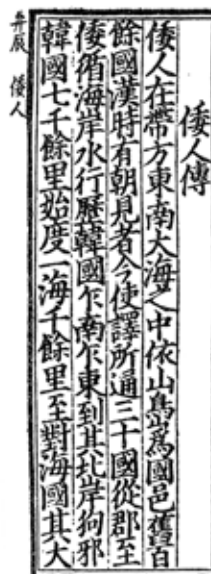 倭人傳
倭人在帶方東南大海之中依山島爲國邑舊百
餘國漢時有朝見者今使譯所通三十國從郡至
倭循海岸水行歷韓國乍南乍東到其北岸狗邪
韓國七千餘里始度一海千餘里至對海國其大
弁辰 倭人